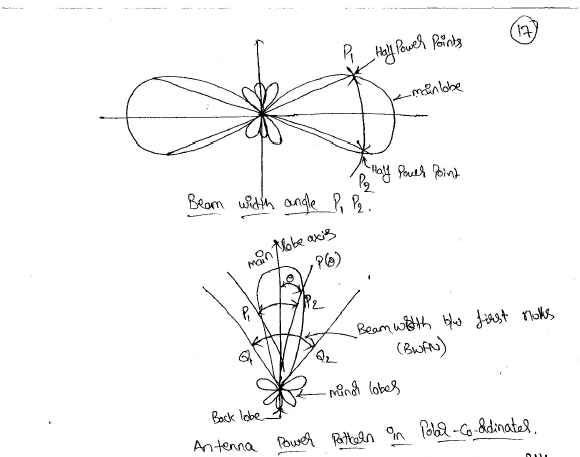 17
P1 Half Power Points
main lobe
Half Power Point
P2
Beam width angle P1 P2.
main lobe axis
P(θ)
θ
P1 P2
Beamwidth b/w first nulls
(BWFN)
Q1 Q2
minor lobes
Back lobe
Antenna Power Pattern in Polar-Co-ordinates.